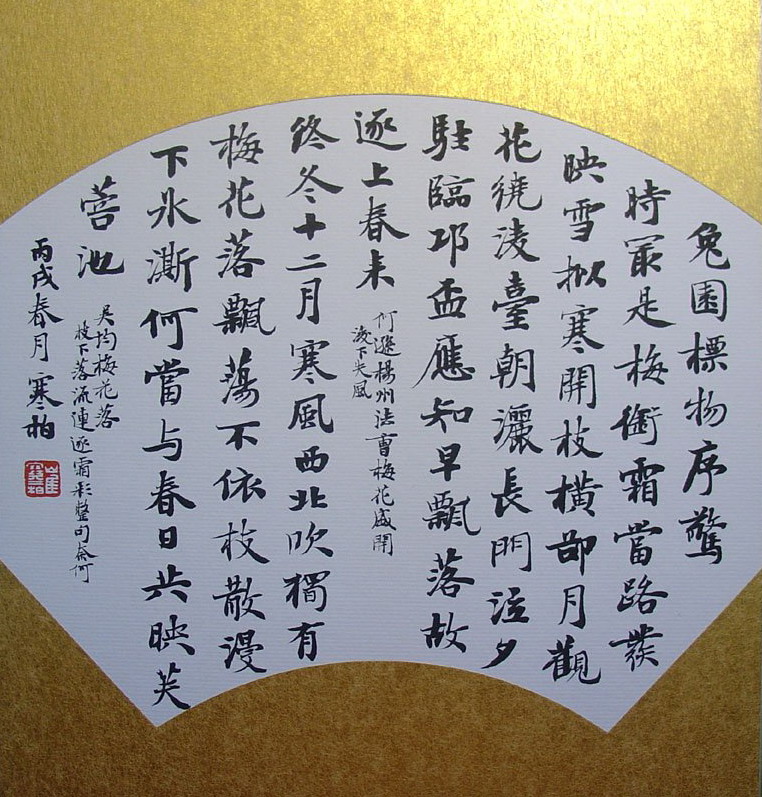 兔園標物序驚
時冣是梅銜霜當路發
映雪拟寒開枝橫卻月觀
花繞淩臺朝灑長門泣夕
駐臨邛盃應知早飄落故
逐上春来
何遜楊州法曹梅花盛開
淩下失風
終冬十二月寒風西北吹獨有
梅花落飄蕩不依枝散漫
下冰澌何當与春日共映芙
蓉池
吳均梅花落
枝下落流連逐霜彩整句奈何
丙戌春月寒柏
崔寒柏